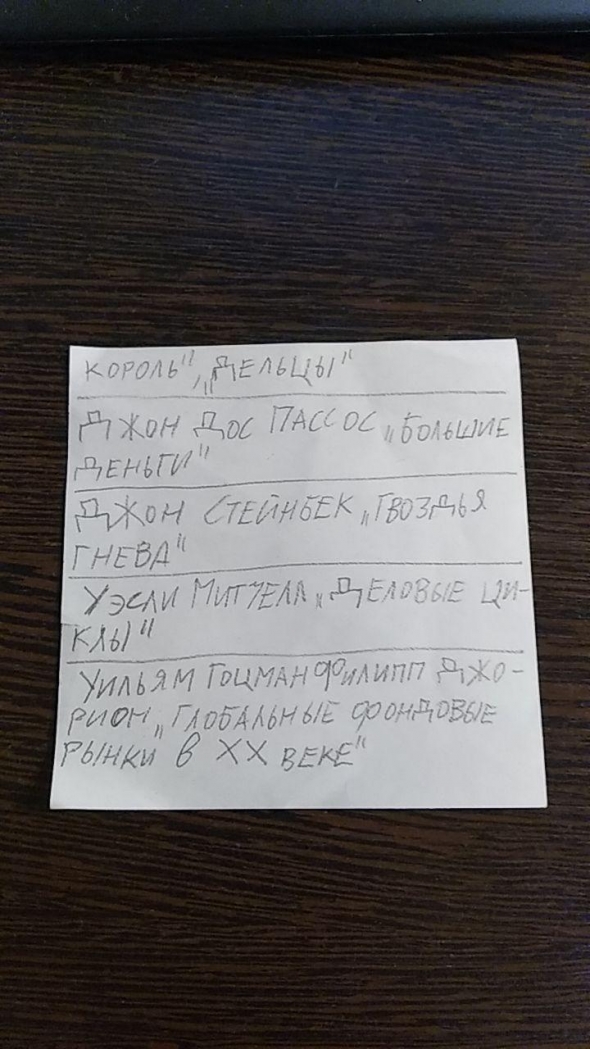 КОРОЛЬ", „ДЕЛЬЦЫ"
ДЖОН ДОС ПАССОС „БОЛЬШИЕ
ДЕНЬГИ"
ДЖОН СТЕЙНБЕК „ГВОЗДЬЯ
ГНЕВА"
УЭСЛИ МИТЧЕЛЛ „ДЕЛОВЫЕ ЦИ-
КЛЫ"
УИЛЬЯМ ГОЦМАН ФИЛИПП ДЖО-
РИОН „ГЛОБАЛЬНЫЕ ФОНДОВЫЕ
РЫНКИ В XX ВЕКЕ"